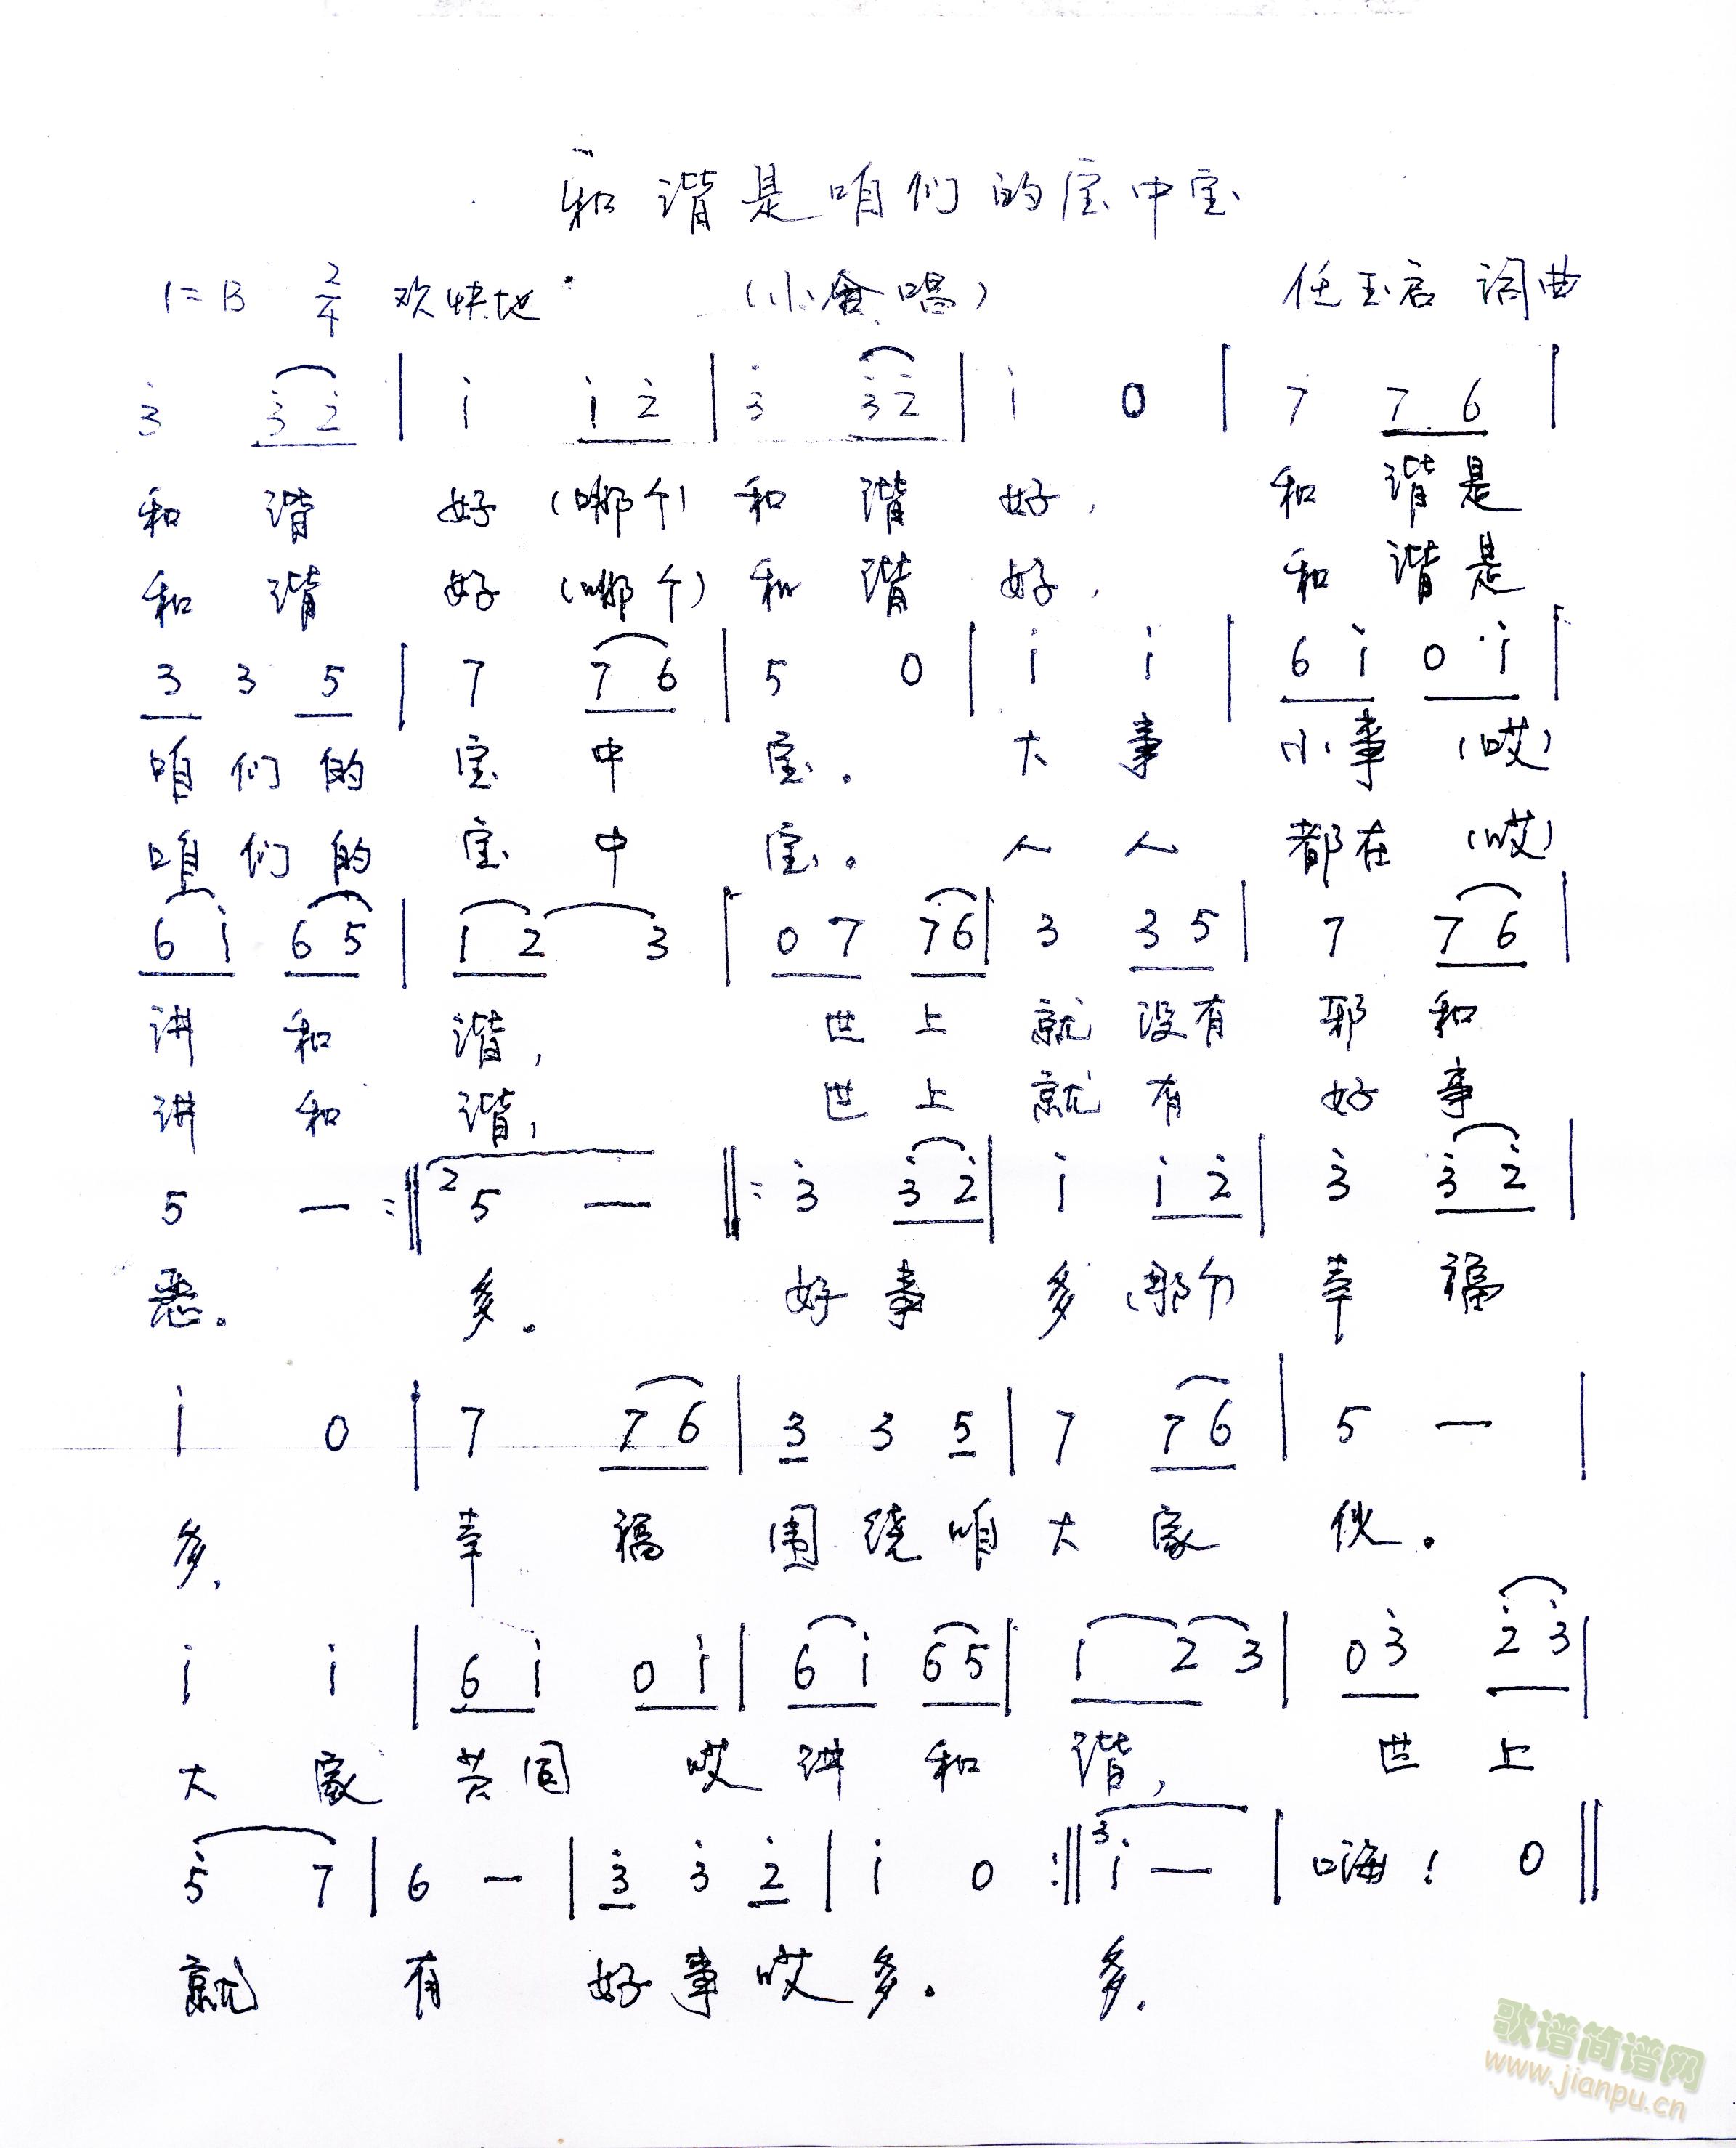 和谐是咱们的宝中宝
1=B 2/4 欢快地 (小合唱) 任玉启 词曲
3̇ 3̇ 2̇ | i i 2̇ | 3̇ 3̇ 2̇ | i 0 | 7 7 6 |
和 谐 好 (哪个) 和 谐 好, 和 谐是
和 谐 好 (哪个) 和 谐 好, 和 谐是
3 3 5 | 7 7 6 | 5 0 | i i | 6 i 0 i |
咱 们 的 宝 中 宝。 大 事 小事 (哎)
咱 们 的 宝 中 宝。 人 人 都在 (哎)
6 i 6 5 | 1 2 3 | 0 7 7 6 | 3 3 5 | 7 7 6 |
讲 和 谐, 世 上 就 没有 邪 和
讲 和 谐, 世 上 就 有 好 事
5 — :‖ 2 5 — ‖: 3̇ 3̇ 2̇ | i i 2̇ | 3̇ 3̇ 2̇ |
恶。 多。 好 事 多 (那个) 幸 福
i 0 | 7 7 6 | 3 3 5 | 7 7 6 | 5 — |
多, 幸 福 围 绕 咱 大 家 伙。
i i | 6 i 0 i | 6 i 6 5 | 1 2 3 | 0 3̇ 2̇ 3̇ |
大 家 共同 哎 讲 和 谐, 世 上
5̇ 7 | 6 — | 3̇ 3̇ 2̇ | i 0 :‖ 3 i — | 嗨! 0 ‖
就 有 好 事 哎 多。 多.
歌谱简谱网
www.jianpu.cn